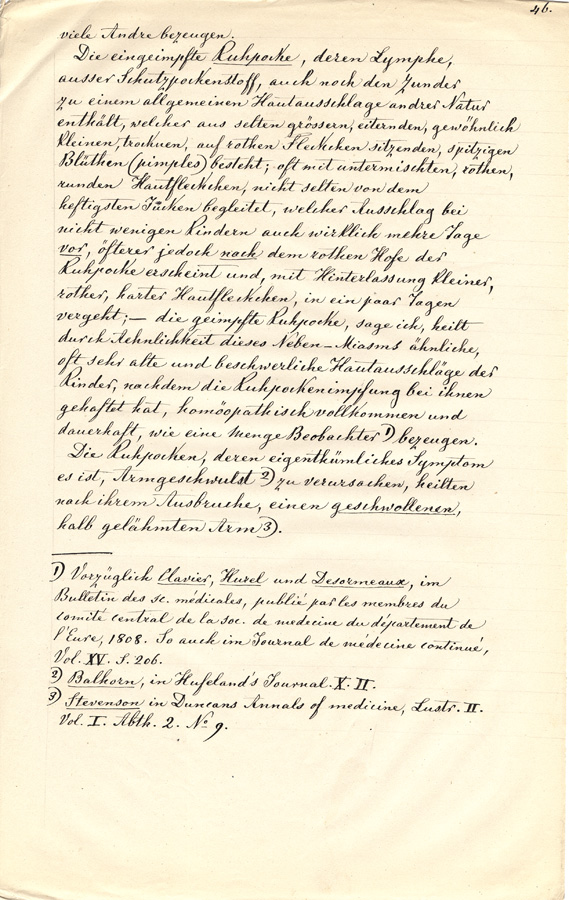 46.
viele Andre bezeugen.
Die eingeimpfte Kuhpocke, deren Lymphe,
ausser Schutzpockenstoff, auch noch den Zunder
zu einem allgemeinen Hautausschlage andrer Natur
enthält, welcher aus selten grössern, eiternden, gewöhnlich
kleinen, trocknen, auf rothen Fleckchen sitzenden, spitzigen
Blüthen (pimples) besteht; oft mit untermischten, rothen,
runden Hautfleckchen, nicht selten von dem
heftigsten Jücken begleitet, welcher Ausschlag bei
nicht wenigen Kindern auch wirklich mehre Tage
vor, öfterer jedoch nach dem rothen Hofe der
Kuhpocke erscheint und, mit Hinterlassung kleiner,
rother, harter Hautfleckchen, in ein paar Tagen
vergeht; — die geimpfte Kuhpocke, sage ich, heilt
durch Aehnlichkeit dieses Neben-Miasms ähnliche,
oft sehr alte und beschwerliche Hautausschläge der
Kinder, nachdem die Kuhpockenimpfung bei ihnen
gehaftet hat, homöopathisch vollkommen und
dauerhaft, wie eine Menge Beobachter 1) bezeugen.
Die Kuhpocken, deren eigenthümliches Symptom
es ist, Armgeschwulst 2) zu verursachen, heilten
nach ihrem Ausbruche, einen geschwollenen,
halb gelähmten Arm 3).
1) Vorzüglich Clavier, Hurel und Desormeaux, im
Bulletin des sc. médicales, publié par les membres du
comité central de la soc. de medecine du département de
l'Eure, 1808. So auch im Journal de médecine continué,
Vol. XV. S. 206.
2) Balhorn, in Hufeland's Journal. X. II.
3) Stevenson in Duncans Annals of medicine, Lustr. II.
Vol. I. Abth. 2. No 9.